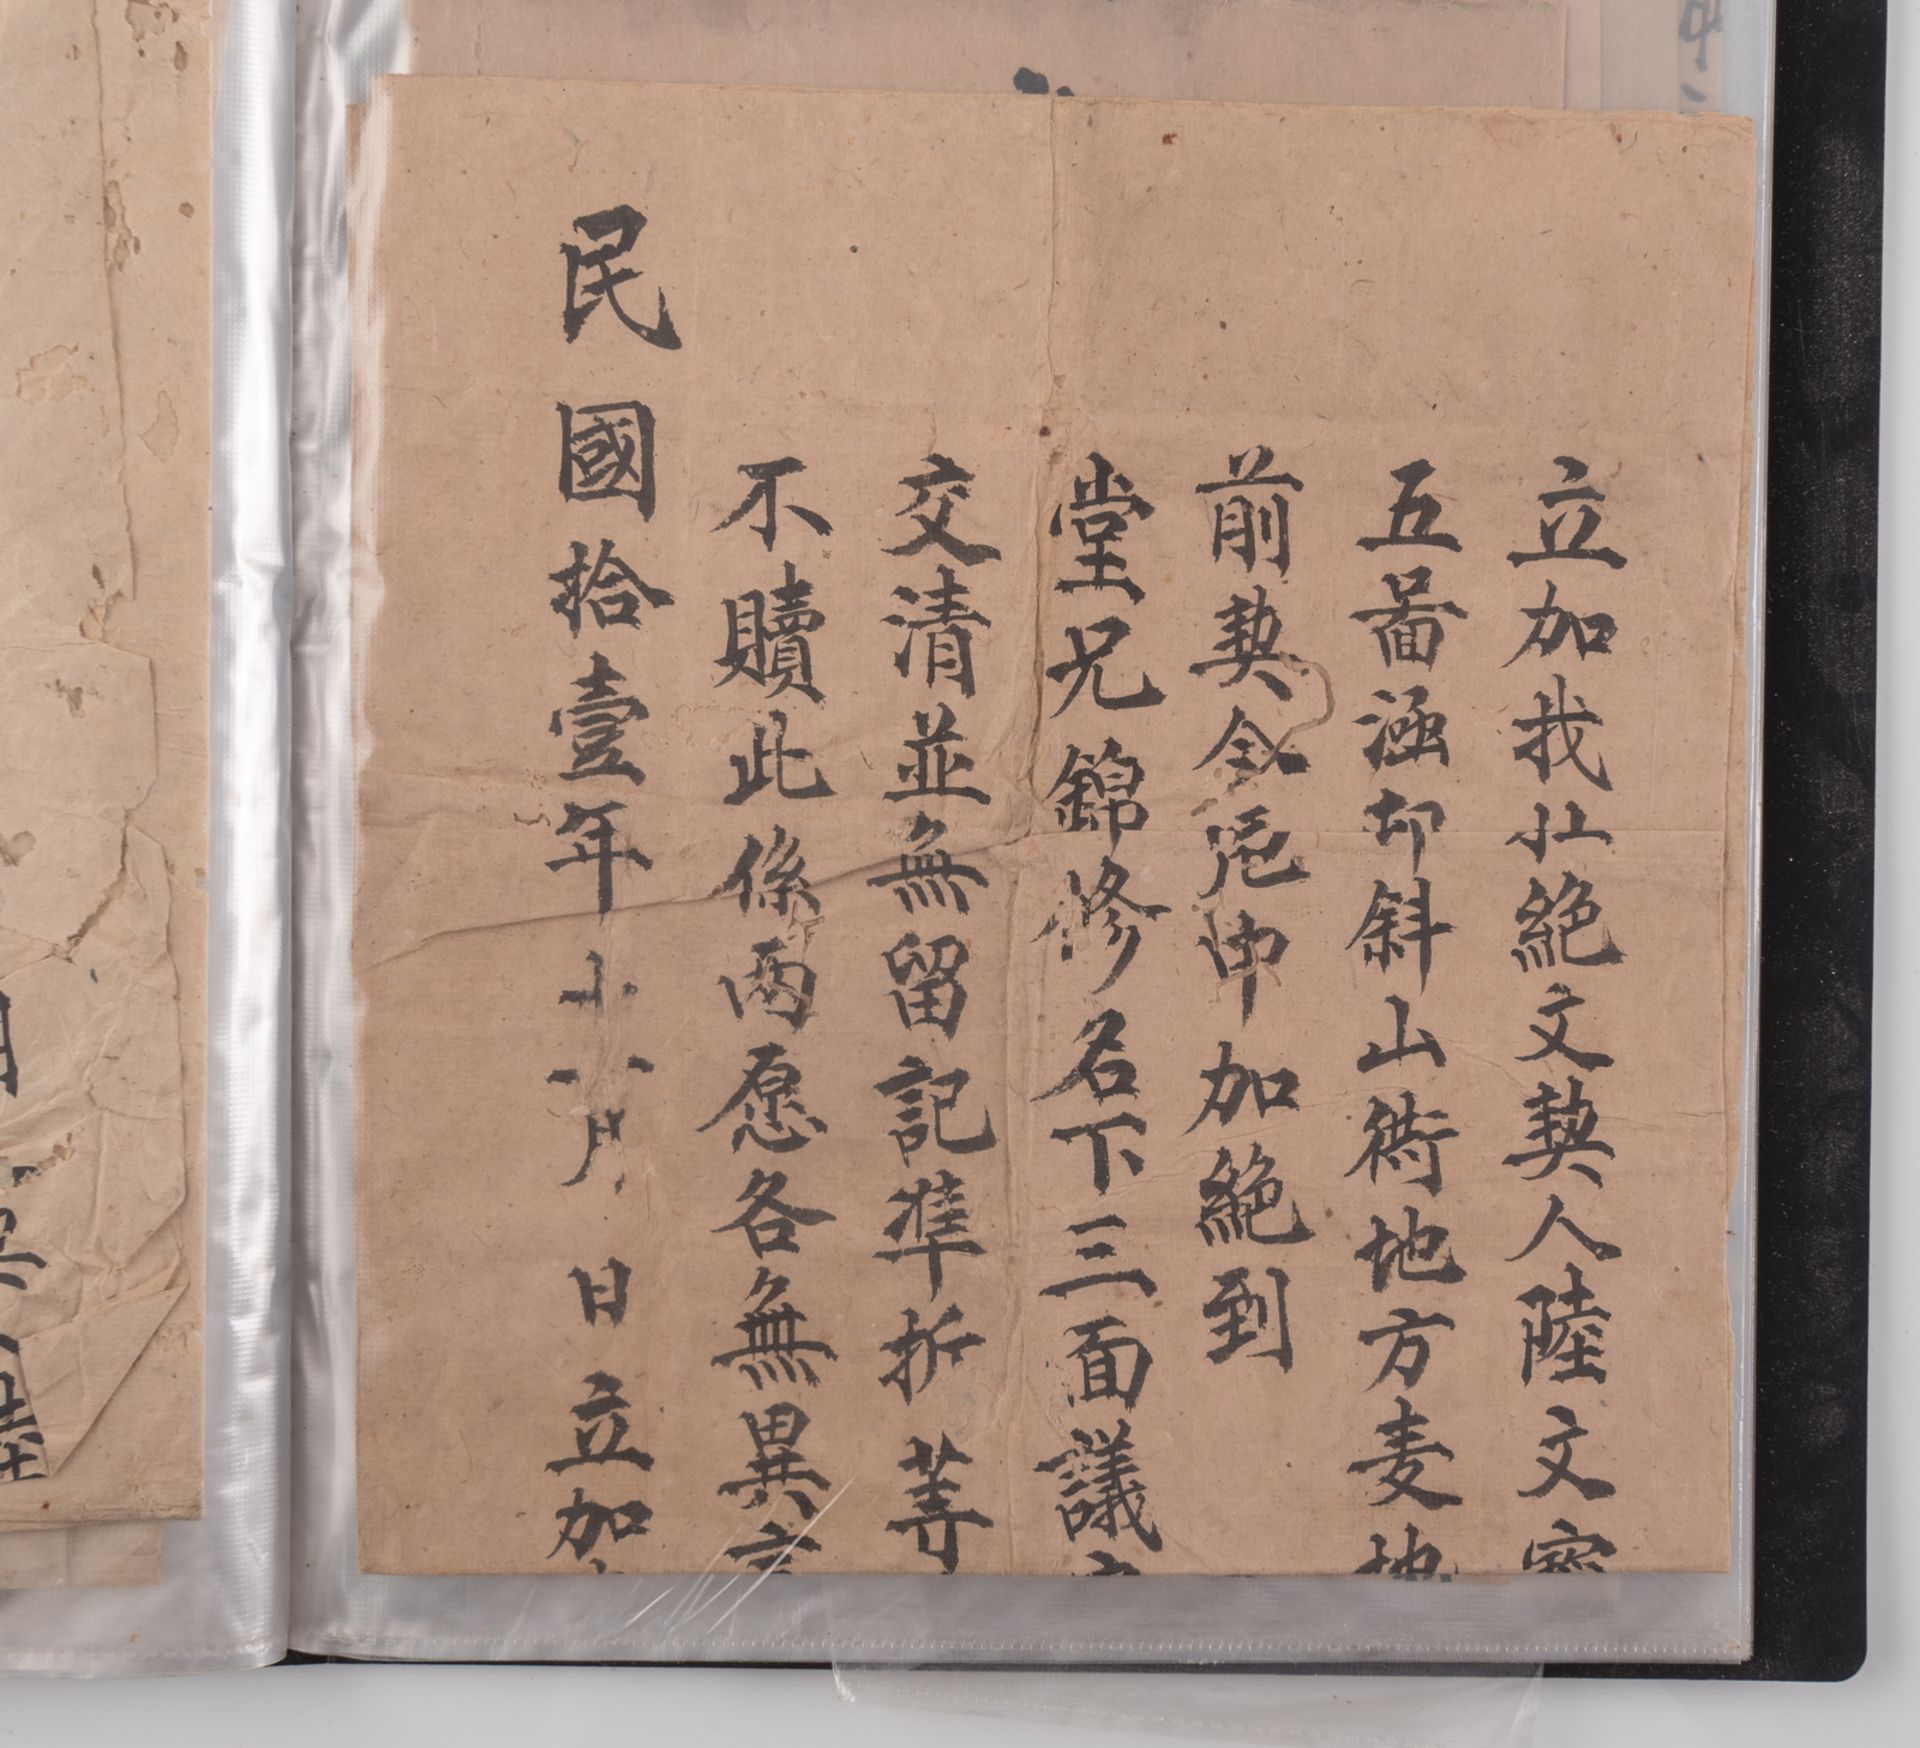 立加找壮絕文契人陸文
五啚涵却斜山衖地方麦地
前契今凂中加絕到
堂兄錦修名下三面議
交清並無留記準折䒭
不贖此係两愿各無異
民國拾壹年十月日立加